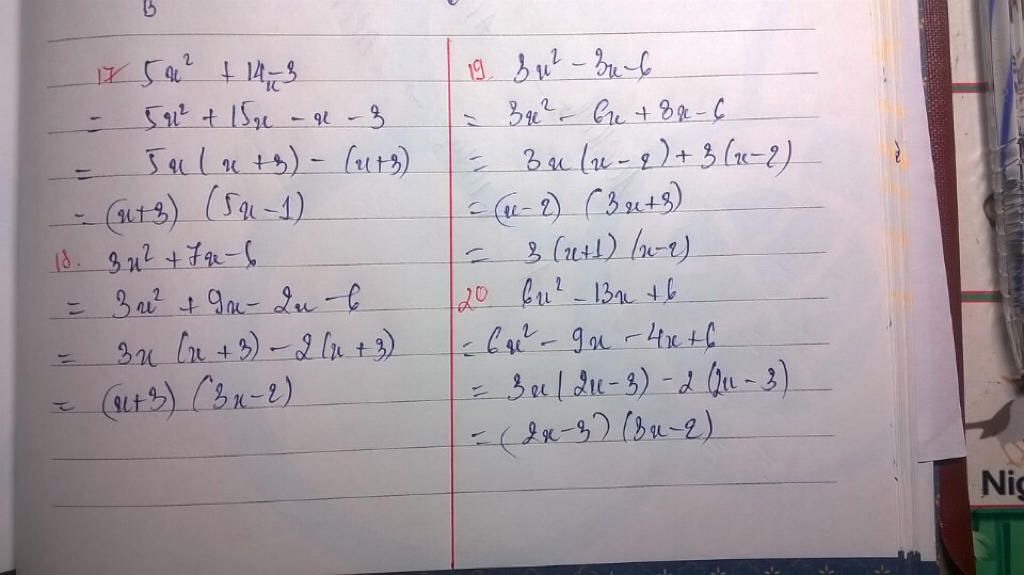 B
17 5x² + 14x-3
= 5x² + 15x - x - 3
= 5x(x+3) - (x+3)
= (x+3) (5x-1)
18. 3x² + 7x-6
= 3x² + 9x - 2x - 6
= 3x (x+3) - 2(x+3)
= (x+3) (3x-2)
19. 3x² - 3x-6
= 3x² - 6x + 3x-6
= 3x(x-2) + 3(x-2)
= (x-2) (3x+3)
= 3(x+1) (x-2)
20 6x² - 13x + 6
= 6x² - 9x - 4x+6
= 3x(2x-3) - 2(2x-3)
= (2x-3) (3x-2)
Nig